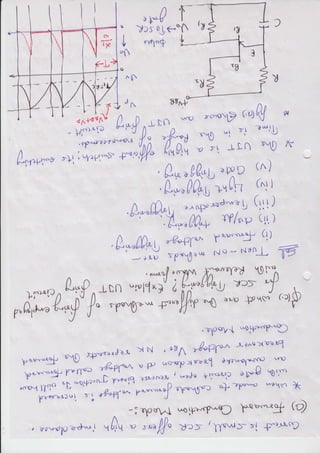 Current is small, SCR offers a high impedance.
(c) Forward Conduction Mode:-
* When anode to cathode forward voltage is increased
with gate circuit open, reverse biased junction J2 will have
an avalanche breakdown at a voltage called forward
breakover voltage VBO. NK represents the forward
Conduction Mode.
Q(c) What are the different methods of firing employed
for SCR Triggering? Explain UJT firing circuit
with Relevant Wave form.
Sol TURN-ON methods are -
(i) Forward voltage Triggering.
(ii) dv/dt triggering.
(iii) Temperature Triggering.
(iv) Light Triggering.
(v) Gate Triggering.
* The UJT is a highly efficient switch; its switching
Time is in the Range of nanoseconds.
* fig(a) shows an UJT firing circuit.
+VBB
R
R2
B2
E
B1
C
R1
Vo
To SCR
gate
Vp
Vv
Vo
T